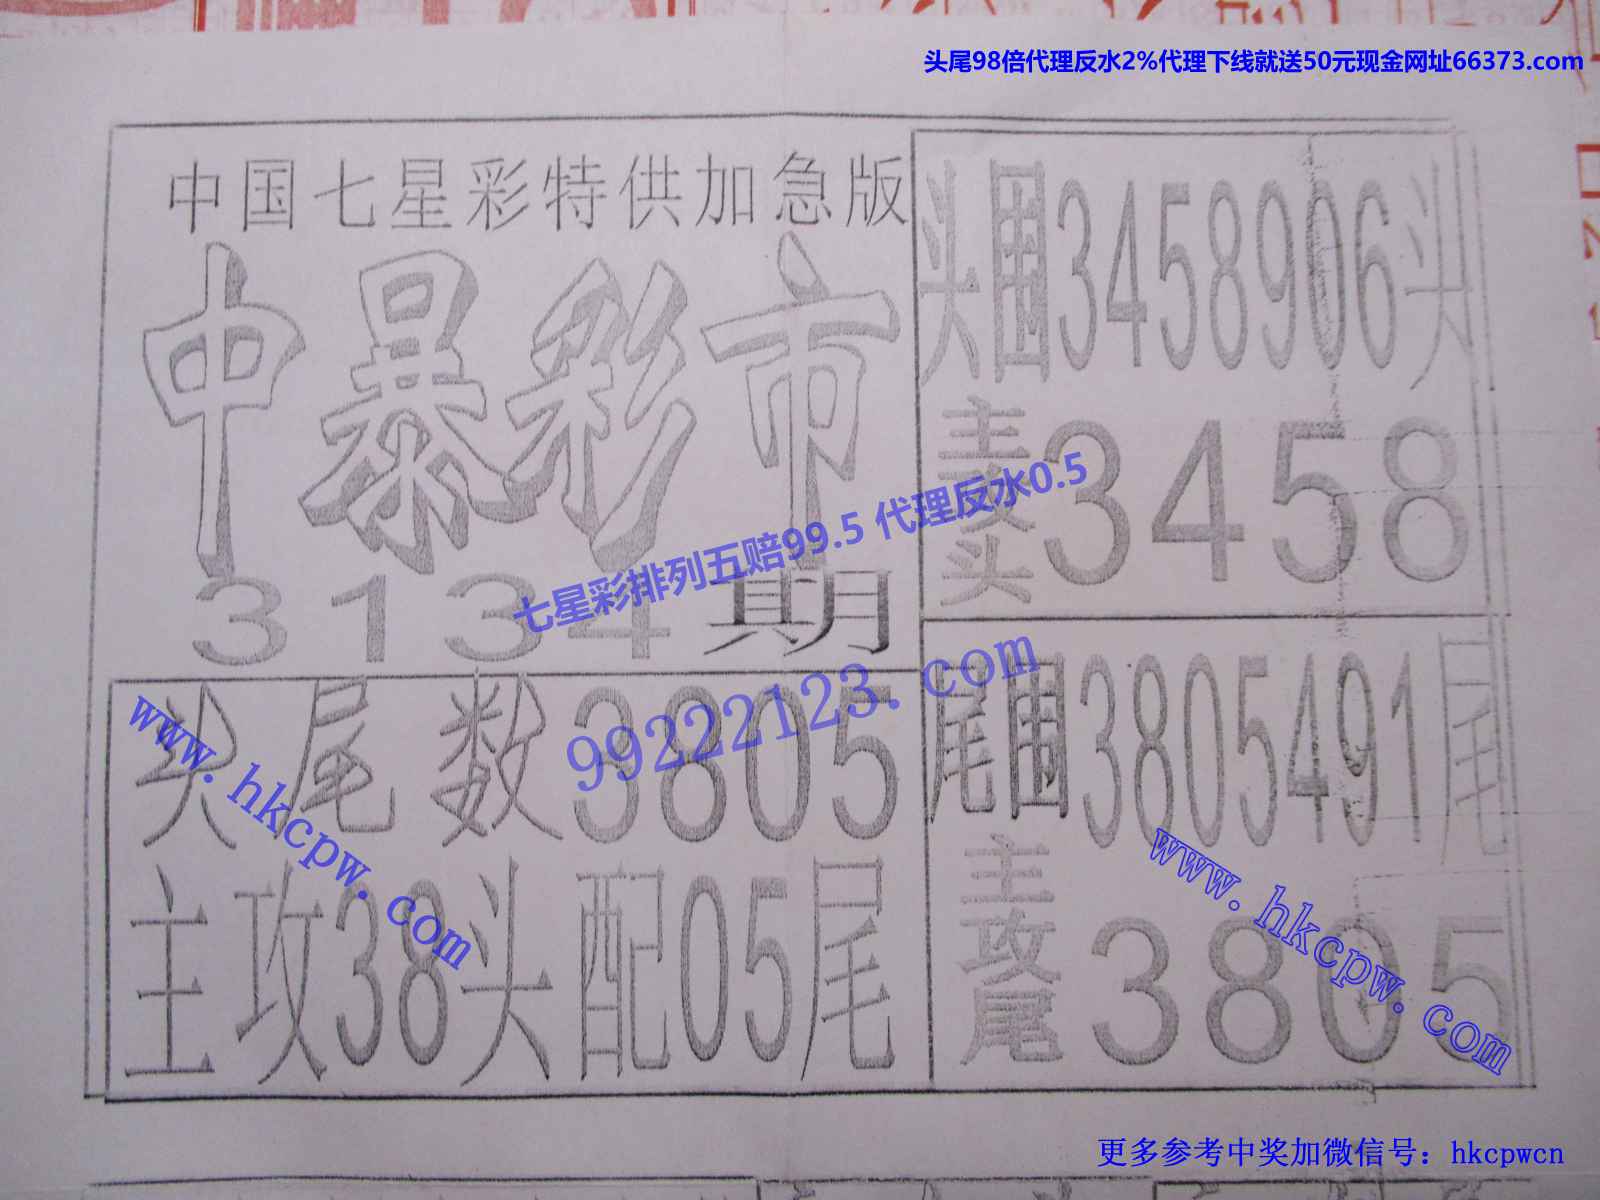 头尾98倍代理反水2%代理下线就送50元现金网址66373.com
中国七星彩特供加急版
中暴彩市
3134期
头围3458906头
主攻头3458
七星彩排列五赔99.5 代理反水0.5
99222123.com
头尾数3805
主攻38头配05尾
www.hkcpw.com
尾围3805491尾
主攻尾3805
www.hkcpw.com
更多参考中奖加微信号：hkcpwcn